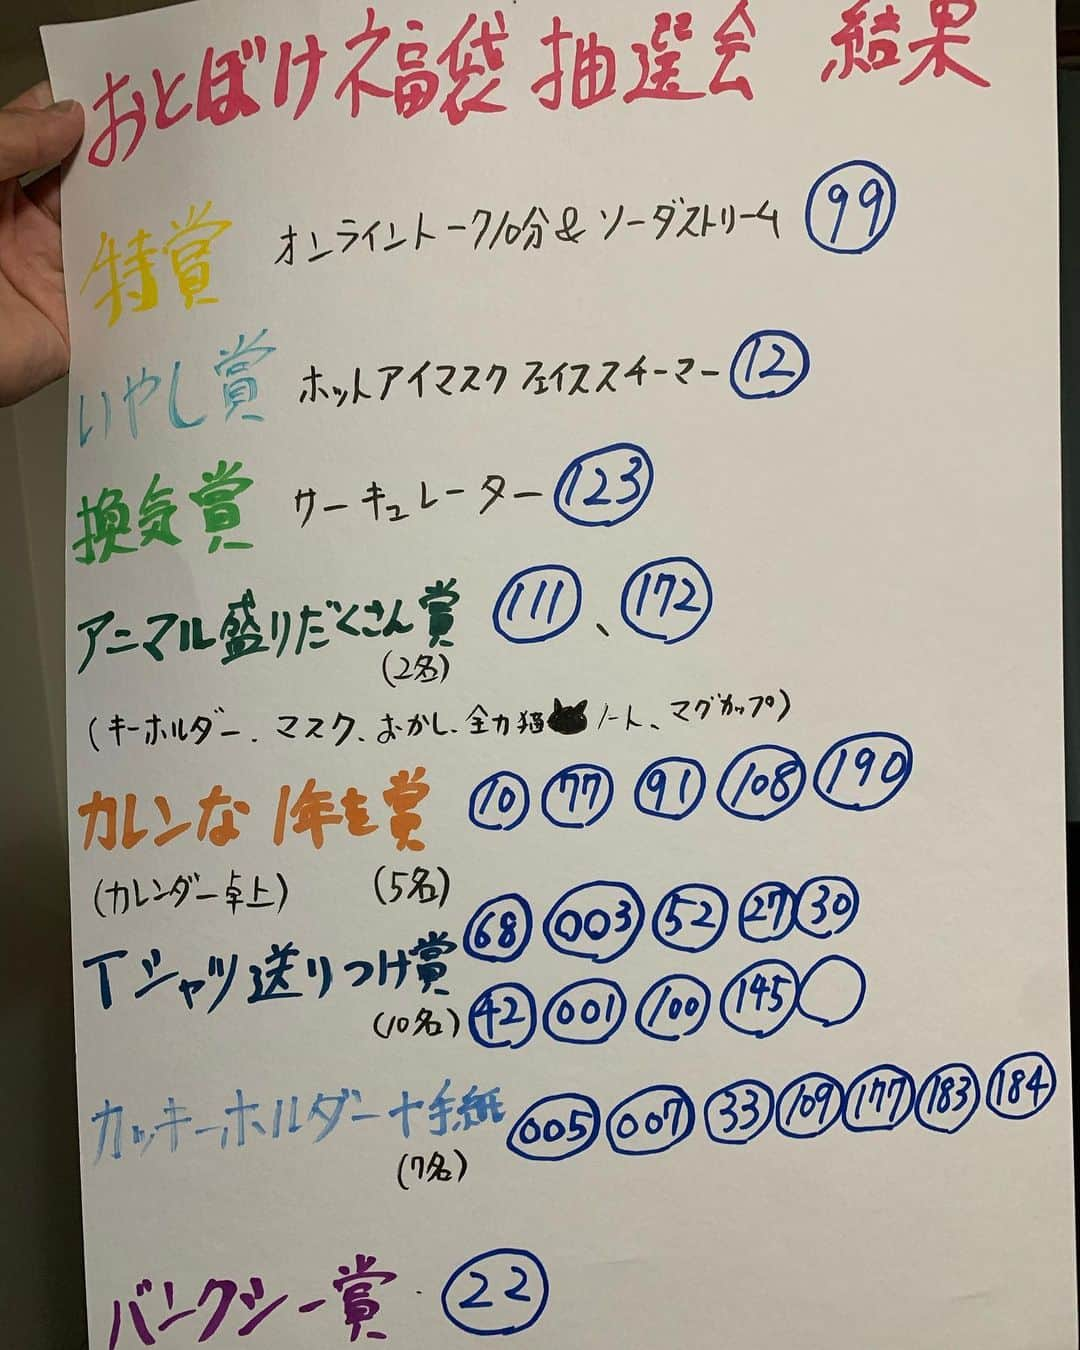 おとぼけ福袋 抽選会 結果
特賞 オンライントーク10分&ソーダストリーム 99
いやし賞 ホットアイマスク フェイススチーマー 12
換気賞 サーキュレーター 123
アニマル盛りだくさん賞 111、172
(2名)
(キーホルダー、マスク、おかし、全力猫 ノート、マグカップ)
カレンな1年を賞 10 77 91 108 190
(カレンダー卓上) (5名)
68 003 52 27 30
Tシャツ送りつけ賞
(10名) 42 001 100 145
カッキーホルダー+手紙 005 007 33 109 177 183 184
(7名)
バンクシー賞 22